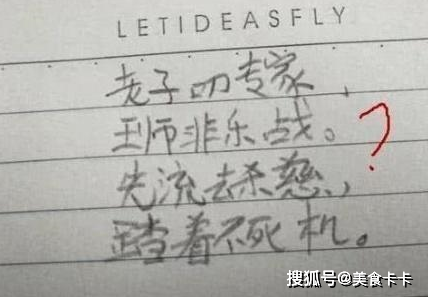 LETIDEASFLY
老子叨专家,
王师非乐战。
先流去杀慈,
踏着不死机。
?
搜狐号@美食卡卡